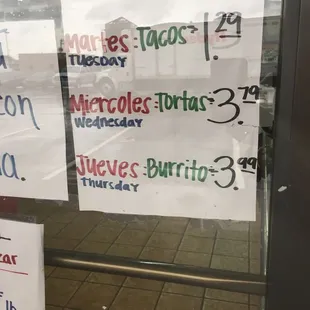 Martes: Tacos= 1.29
Tuesday
Miercoles: Tortas= 3.79
Wednesday
Jueves: Burrito= 3.99
Thursday
con
a.
zar
lb